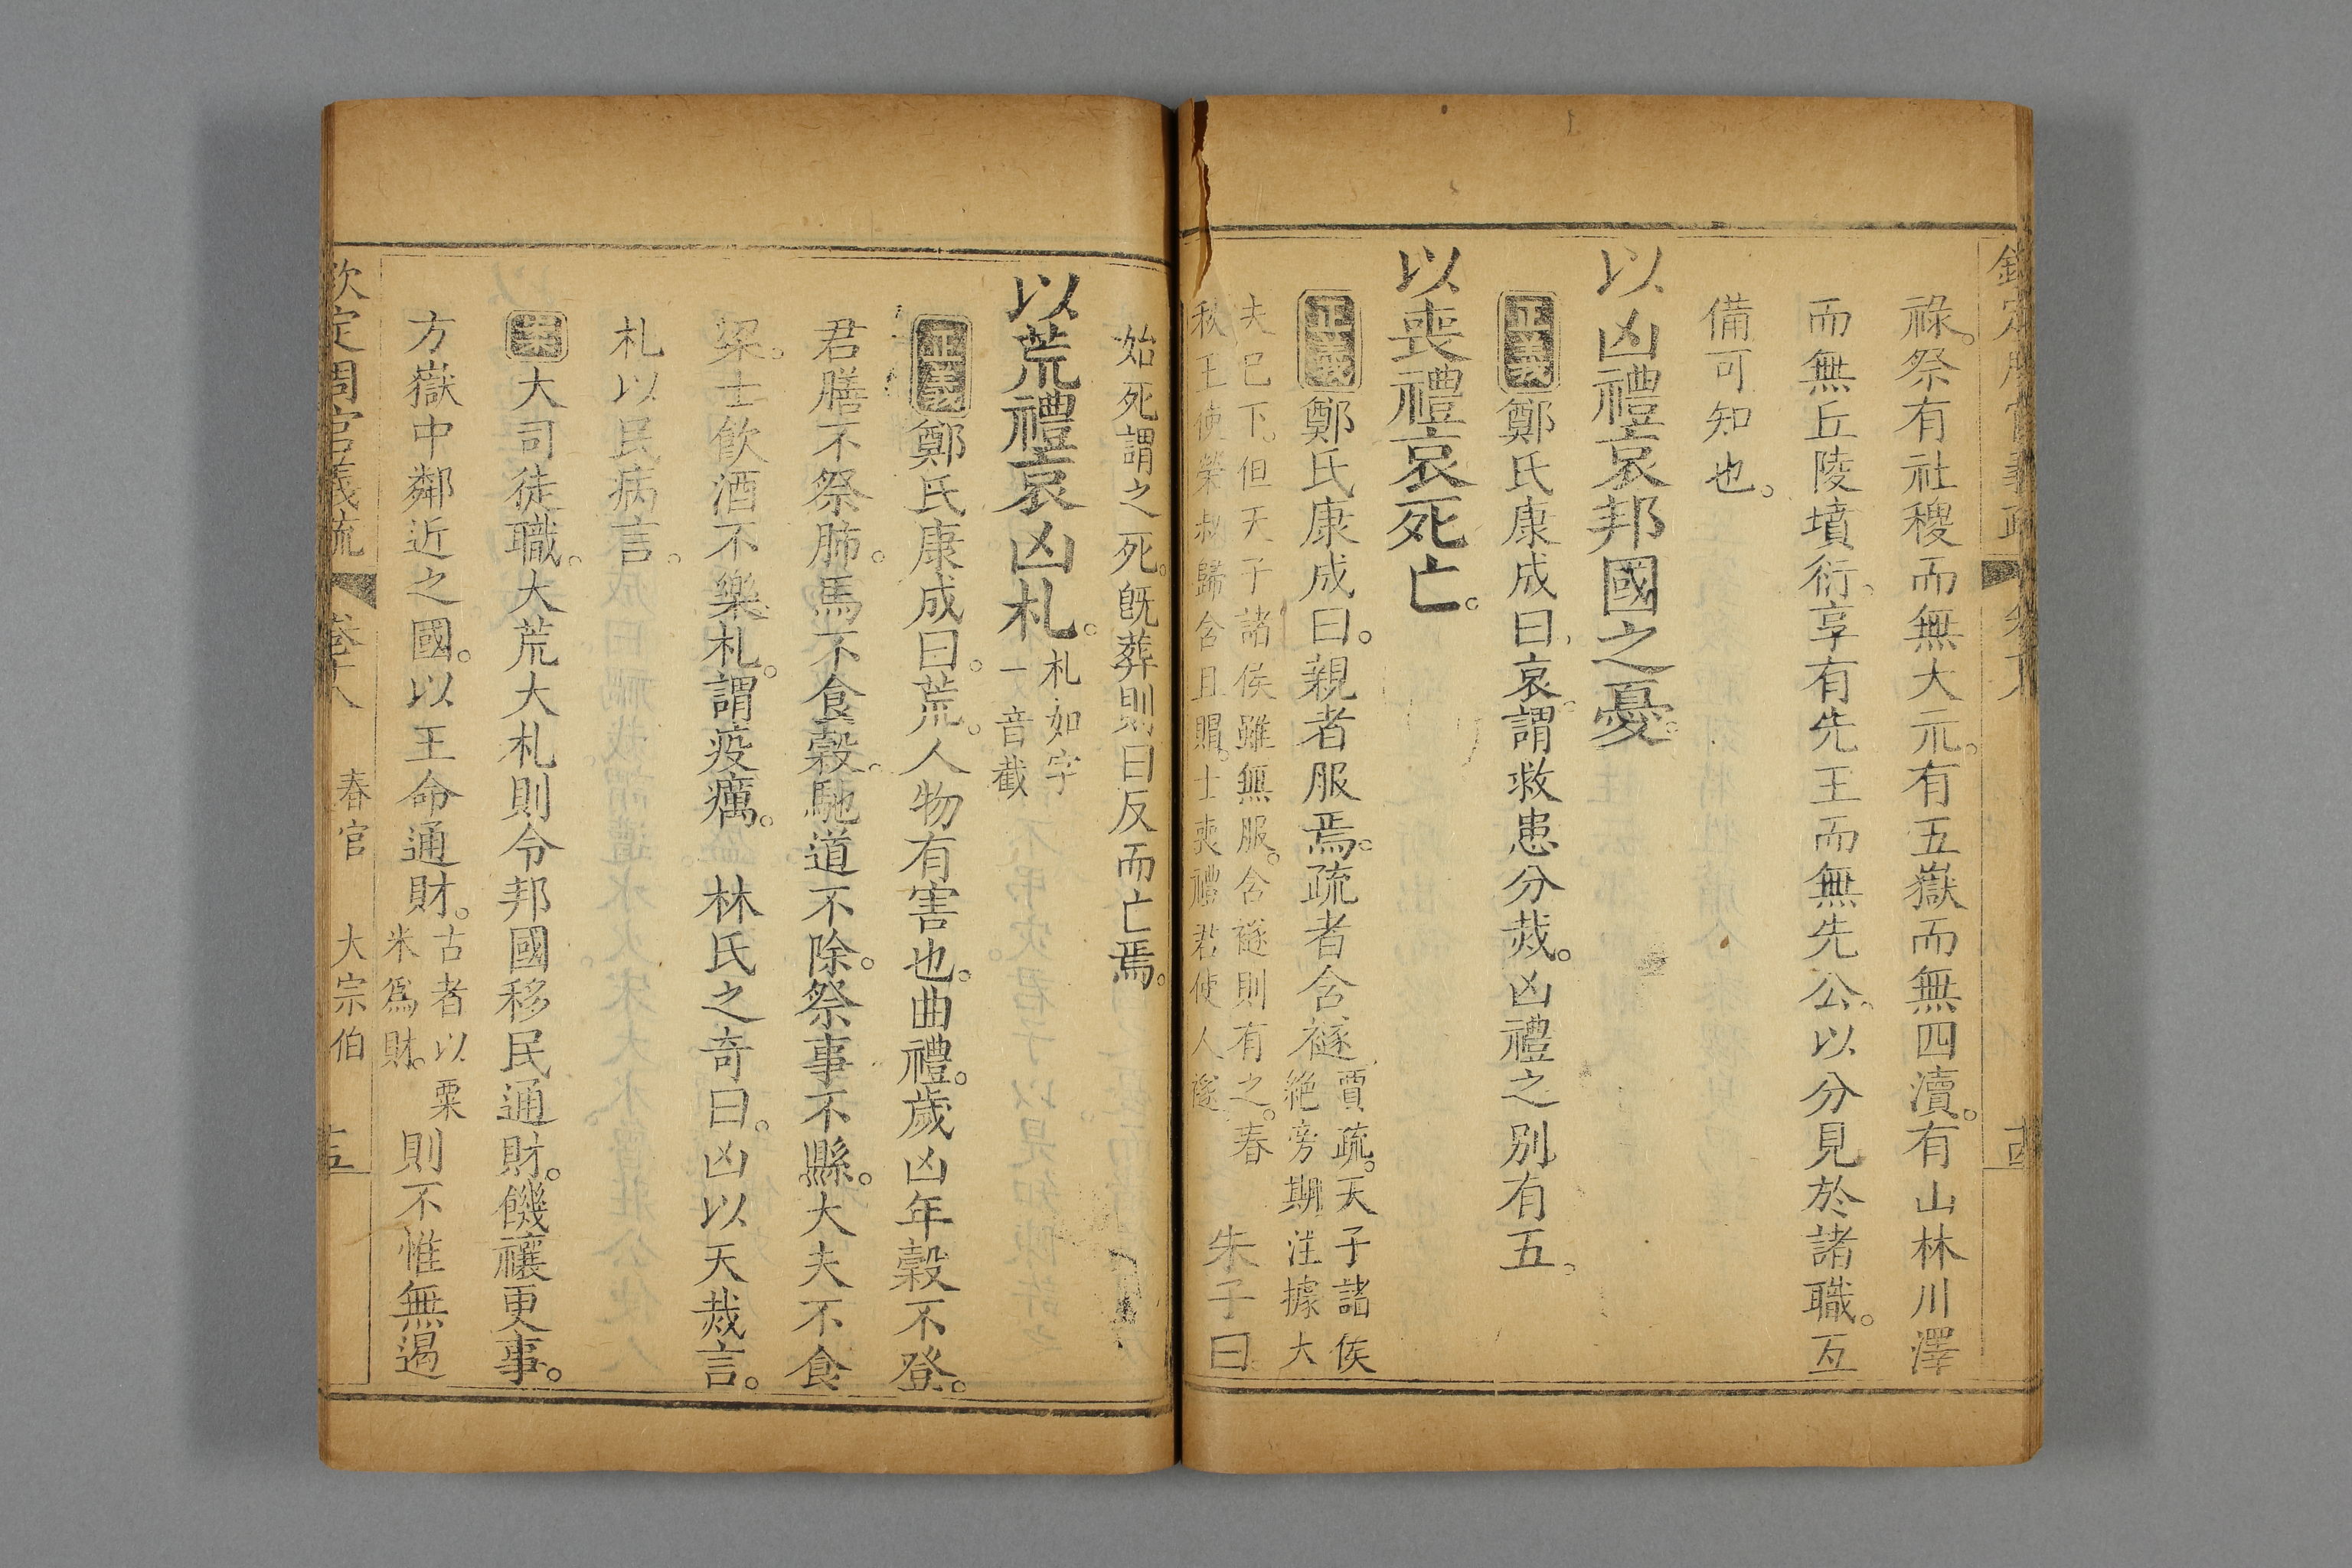 祿。祭有社稷而無大示。有五嶽而無四瀆。有山林川澤
而無丘陵墳衍。享有先王而無先公。以分見於諸職。互
備可知也。
以凶禮哀邦國之憂。
正義鄭氏康成曰。哀。謂救患分烖。凶禮之別有五。
以喪禮哀死亡。
正義鄭氏康成曰。親者服焉。疏者含襚。賈疏。天子諸侯絶旁期。注據大
夫已下。但天子諸侯雖無服。含襚則有之。春秋王使榮叔歸含且賵。士喪禮君使人襚。朱子曰。
始死謂之死。既葬則曰反而亡焉。
以荒禮哀凶札。札如字一音截
正義鄭氏康成曰。荒。人物有害也。曲禮。歲凶年穀不登。
君膳不祭肺。馬不食穀。馳道不除。祭事不縣。大夫不食
粱。士飲酒不樂。札。謂疫癘。林氏之奇曰。凶以天烖言。
札以民病言。
案大司徒職。大荒大札則令邦國移民通財。饑禳更事。
方嶽中鄰近之國。以王命通財。古者以粟米爲財。則不惟無遏
欽定周官義疏 卷十八 春官 大宗伯 十五